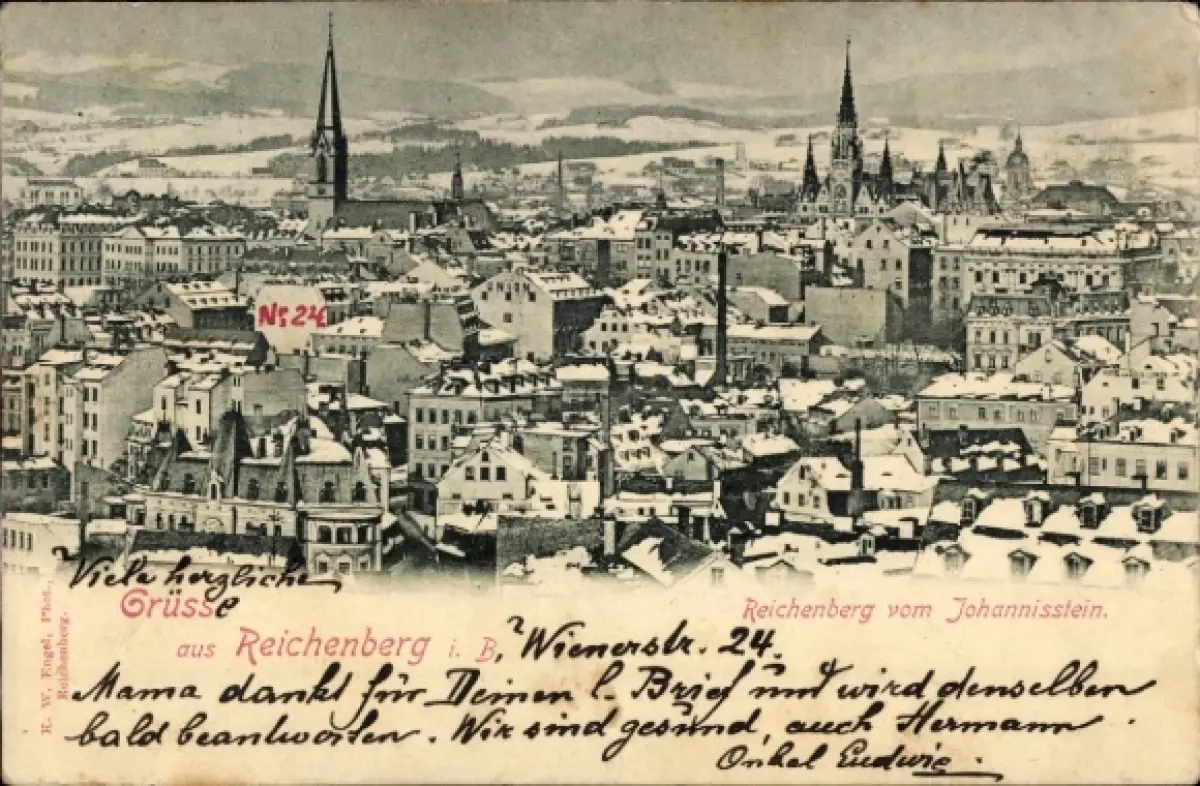 Nº 24
Viele herzliche
Grüsse
Reichenberg vom Johannisstein.
aus Reichenberg i. B., Wienerstr. 24.
Mama dankt für Deinen l. Brief und wird denselben
bald beantworten. Wir sind gesund, auch Hermann.
Onkel Ludwig.
R. W. Engel, Phot.,
Reichenberg.